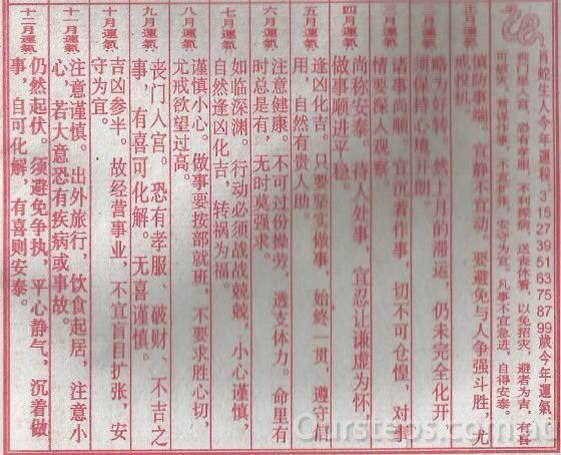 肖蛇生人今年运程 3 15 27 39 51 63 75 87 99 歲今年運氣
丧门星入宫，恐有孝服，不利探病，送丧休看，以免招灾，避者为吉，有喜
可化灾，营谋作事，不宜奔波，安守为宜。凡事不宜急进，自得安泰。
正月運氣
慎防事端。宜静不宜动。要避免与人争强斗胜，尤
戒投机。
二月運氣
略为好转，然上月的滞运，仍未完全化开，
须保持心境开朗。
三月運氣
诸事尚顺，宜沉着作事，切不可仓惶，对事
情要深入观察。
四月運氣
尚称安泰。待人处事，宜忍让谦虚为怀，
做事顺进平稳。
五月運氣
逢凶化吉。只要坚实做事，始终一贯，遵守信
用，自然有贵人助。
六月運氣
注意健康。不可过份操劳，透支体力。命里有
时总是有，无时莫强求。
七月運氣
如临深渊。行动必须战战兢兢，小心谨慎，
自然逢凶化吉，转祸为福。
八月運氣
谨慎小心。做事要按部就班，不要求胜心切，
尤戒欲望过高。
九月運氣
丧门入宫。恐有孝服、破财、不吉之
事，有喜可化解。无喜谨慎。
十月運氣
吉凶参半。故经营事业，不宜盲目扩张，安
守为宜。
十一月運氣
注意谨慎。出外旅行，饮食起居，注意小
心，若大意恐有疾病或事故。
十二月運氣
仍然起伏。须避免争执，平心静气，沉着做
事，自可化解，有喜则安泰。
Oursteps.com.au